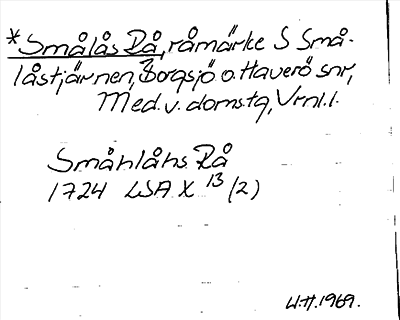 *Smålås Rå, råmärke S Små-
låstjärnen, Borgsjö o. Haverö snr,
Med. v. domstg, Vrnl. l.
Småhlåhs Rå
1724 LSA X 13 (2)
W.H. 1969.